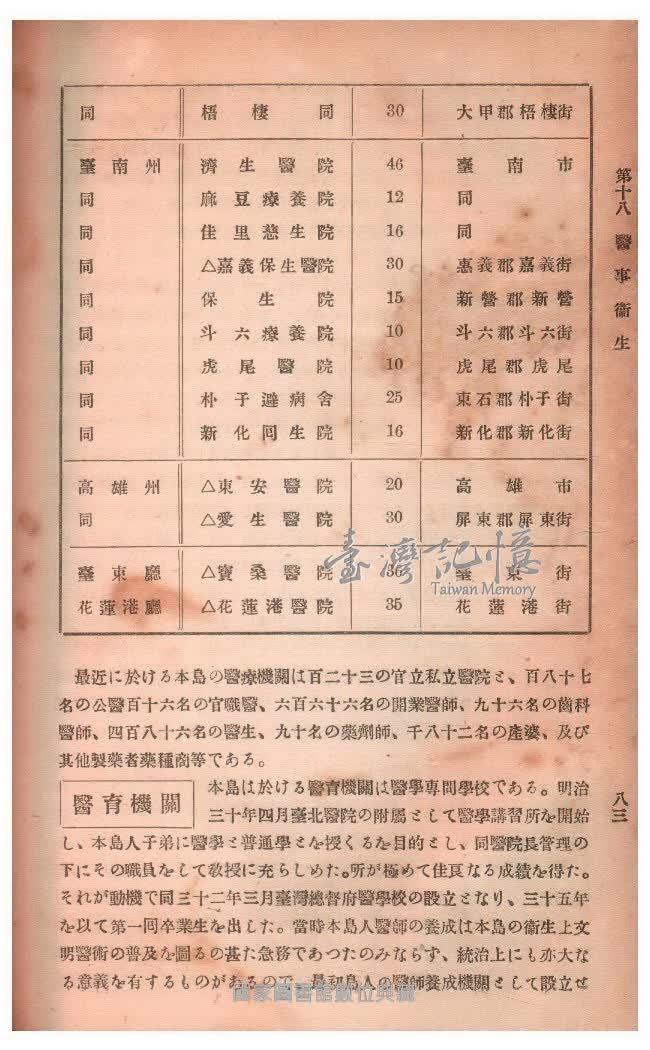 同 梧棲同 30 大甲郡梧棲街
臺南州 濟生醫院 46 臺南市
同 麻豆療養院 12 同
同 佳里慈生院 16 同
同 △嘉義保生醫院 30 惠義郡嘉義街
同 保生院 15 新營郡新營
同 斗六療養院 10 斗六郡斗六街
同 虎尾醫院 10 虎尾郡虎尾
同 朴子避病舍 25 東石郡朴子街
同 新化同生院 16 新化郡新化街
高雄州 △東安醫院 20 高雄市
同 △愛生醫院 30 屏東郡屏東街
臺東廳 △寶桑醫院 36 臺東街
花蓮港廳 △花蓮港醫院 35 花蓮港街
第十八 醫事衞生
臺灣記憶
Taiwan Memory
最近に於ける本島の醫療機關は百二十三の官立私立醫院と、百八十七
名の公醫百十六名の官職醫、六百六十六名の開業醫師、九十六名の齒科
醫師、四百八十六名の醫生、九十名の藥劑師、千八十二名の產婆、及び
其他製藥者藥種商等である。
醫育機關
本島は於ける醫育機關は醫學專門學校である。明治
三十年四月臺北醫院の附屬として醫學講習所を開始
し、本島人子弟に醫學と普通學とを授くるを目的とし、同醫院長管理の
下にその職員をして敎授に充らしめた。所が極めて佳良なる成績を得た。
それが動機で同三十二年三月臺灣總督府醫學校の設立となり、三十五年
を以て第一囘卒業生を出した。當時本島人醫師の養成は本島の衞生上文
明醫術の普及を圖るの甚た急務であつたのみならず、統治上にも亦大な
る意義を有するものがあるので、最初島人の醫師養成機關として設立せ
八三
國家圖書館數位典藏